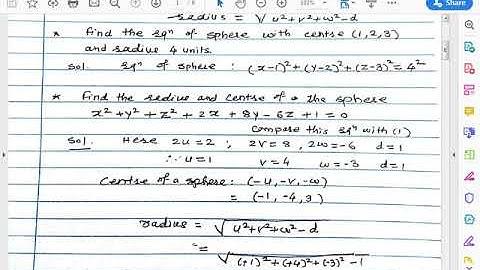 radius = √u²+v²+w²-d
* Find the eqⁿ of sphere with centre (1,2,3)
and radius 4 units.
Sol. Eqⁿ of sphere : (x-1)²+(y-2)²+(z-3)²=4²
* Find the radius and centre of the sphere
x²+y²+z²+2x+8y-6z+1=0
Compare this eqⁿ with (1)
Sol. Here 2u=2 ; 2v=8, 2w=-6 d=1
∴ u=1 v=4 w=-3 d=1
Centre of a sphere : (-u,-v,-w)
= (-1,-4,3)
radius = √u²+v²+w²-d
= √(+1)²+(+4)²+(-3)²-1